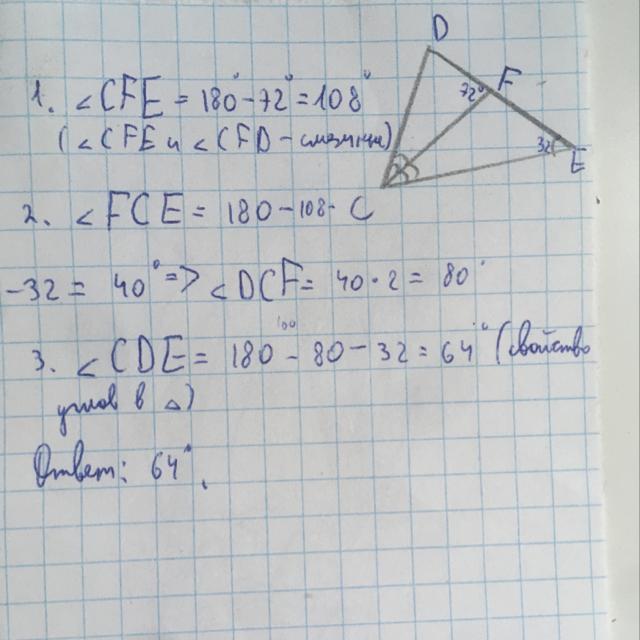 D
F
72°
32
E
C
1. ∠CFE = 180° - 72° = 108°
(∠CFE и ∠CFD - смежные)
2. ∠FCE = 180 - 108 -
- 32 = 40° => ∠DCF = 40 · 2 = 80°
3. ∠CDE = 180 - 80 - 32 = 64° (свойство
углов в △)
Ответ: 64°.